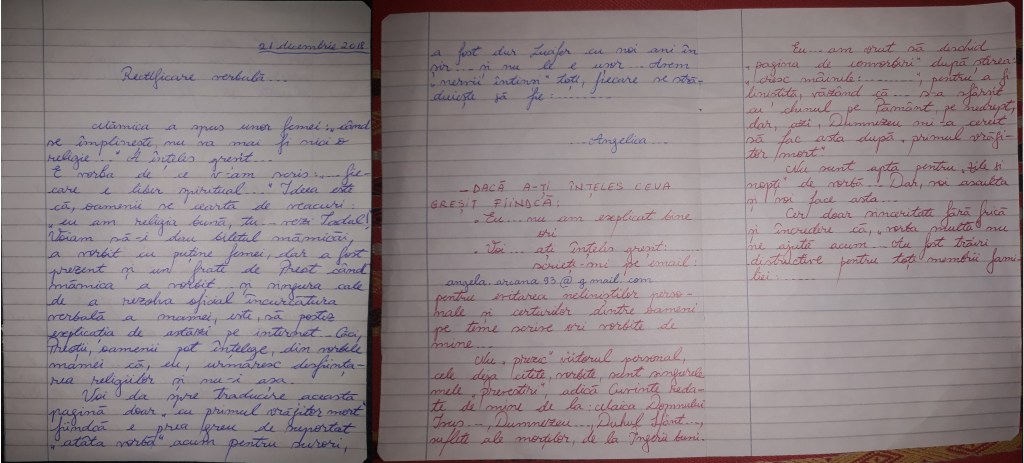 21 decembrie 2018
Rectificare verbală...
Mămica a spus unor femei: „când
se împlinește, nu va mai fi nici o
religie..." A înțeles greșit...
E vorba de ce v-am scris: „... fie-
care e liber spiritual..." Ideea este
că, oamenii se ceartă de veacuri:
„eu am religia bună, tu... vezi Iadul!"
Voiam să-i dau biletul mămicăi,
a vorbit cu puține femei, dar a fost
prezent și un frate de Preot când
mămica a vorbit... și singura cale
de a rezolva oficial încurcătura
verbală a mamei, este, să postez
explicația de astăzi pe internet... Căci,
Preștii, oamenii pot înțelege, din vorbele
mamei că, eu, urmăresc desființa-
rea religiilor și nu-i așa.
Voi da spre traducere această
pagină doar „cu primul vrăjitor mort"
fiindcă e prea greu de suportat
„atâta vorbă" acum pentru surori,
a fost dur Luțfor cu noi ani în
șir... și nu le e ușor... Avem
„nervii întinși" toți, fiecare se stră-
duiește să fie: ...........
...Angelica...
- DACĂ A-ȚI ÎNȚELES CEVA
GREȘIT FIINDCĂ:
• Eu... nu am explicat bine
ori
• Voi... ați înțeles greșit...
scrieți-mi pe email:
angela.ariana93@gmail.com
pentru evitarea neliniștilor perso-
nale și certurilor dintre oameni
pe teme scrise ori vorbite de
mine...
Nu „prezic" viitorul personal,
cele deja citite, vorbite, sunt singurele
mele „prevestiri" adică Cuvinte reda-
te de mine de la: Maica Domnului
Iisus..., Dumnezeu..., Duhul Sfânt...,
suflete ale morților, de la Îngerii buni.
Eu... am vrut să deschid
„pagina de comorbiri" după știrea:
„cresc mâinile: ........", pentru a fi
liniștită, văzând că... s-a sfârșit
cu chinul pe Pământ, pe nedrept,
dar, azi, Dumnezeu mi-a cerut
să fac asta după „primul vrăji-
tor mort"
Nu sunt aptă pentru „zile și
nopți" de vorbă... Dar, voi asculta
și voi face asta...
Cer doar sinceritate fără frică
și încredere că, „vorba multă" nu
ne ajută acum... Au fost trăiri
distructive pentru toți membrii fami-
liei: ...........